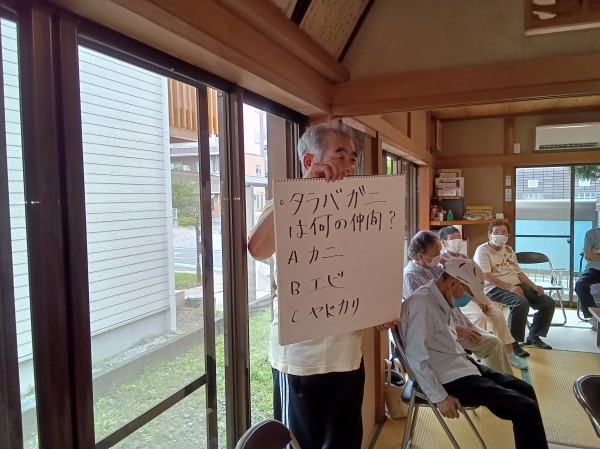 ○タラバガニ
は何の仲间?
A カニ
B エビ
C ヤドカリ